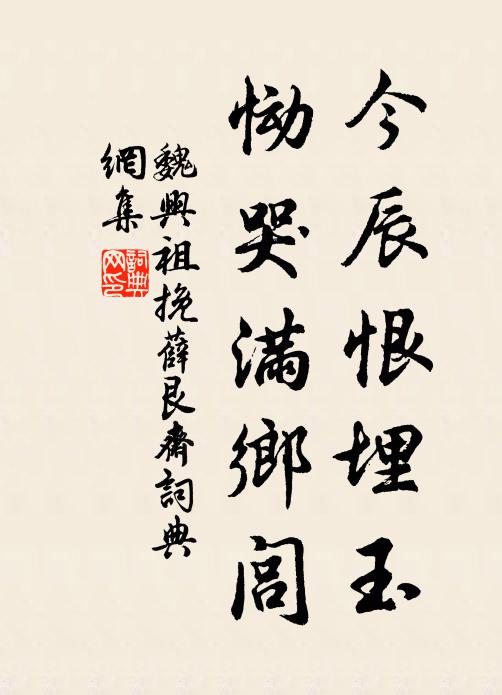 今辰恨埋玉
恸哭滿鄉閭
魏興祖挽薛艮齋詞典
網集
詞典
网印